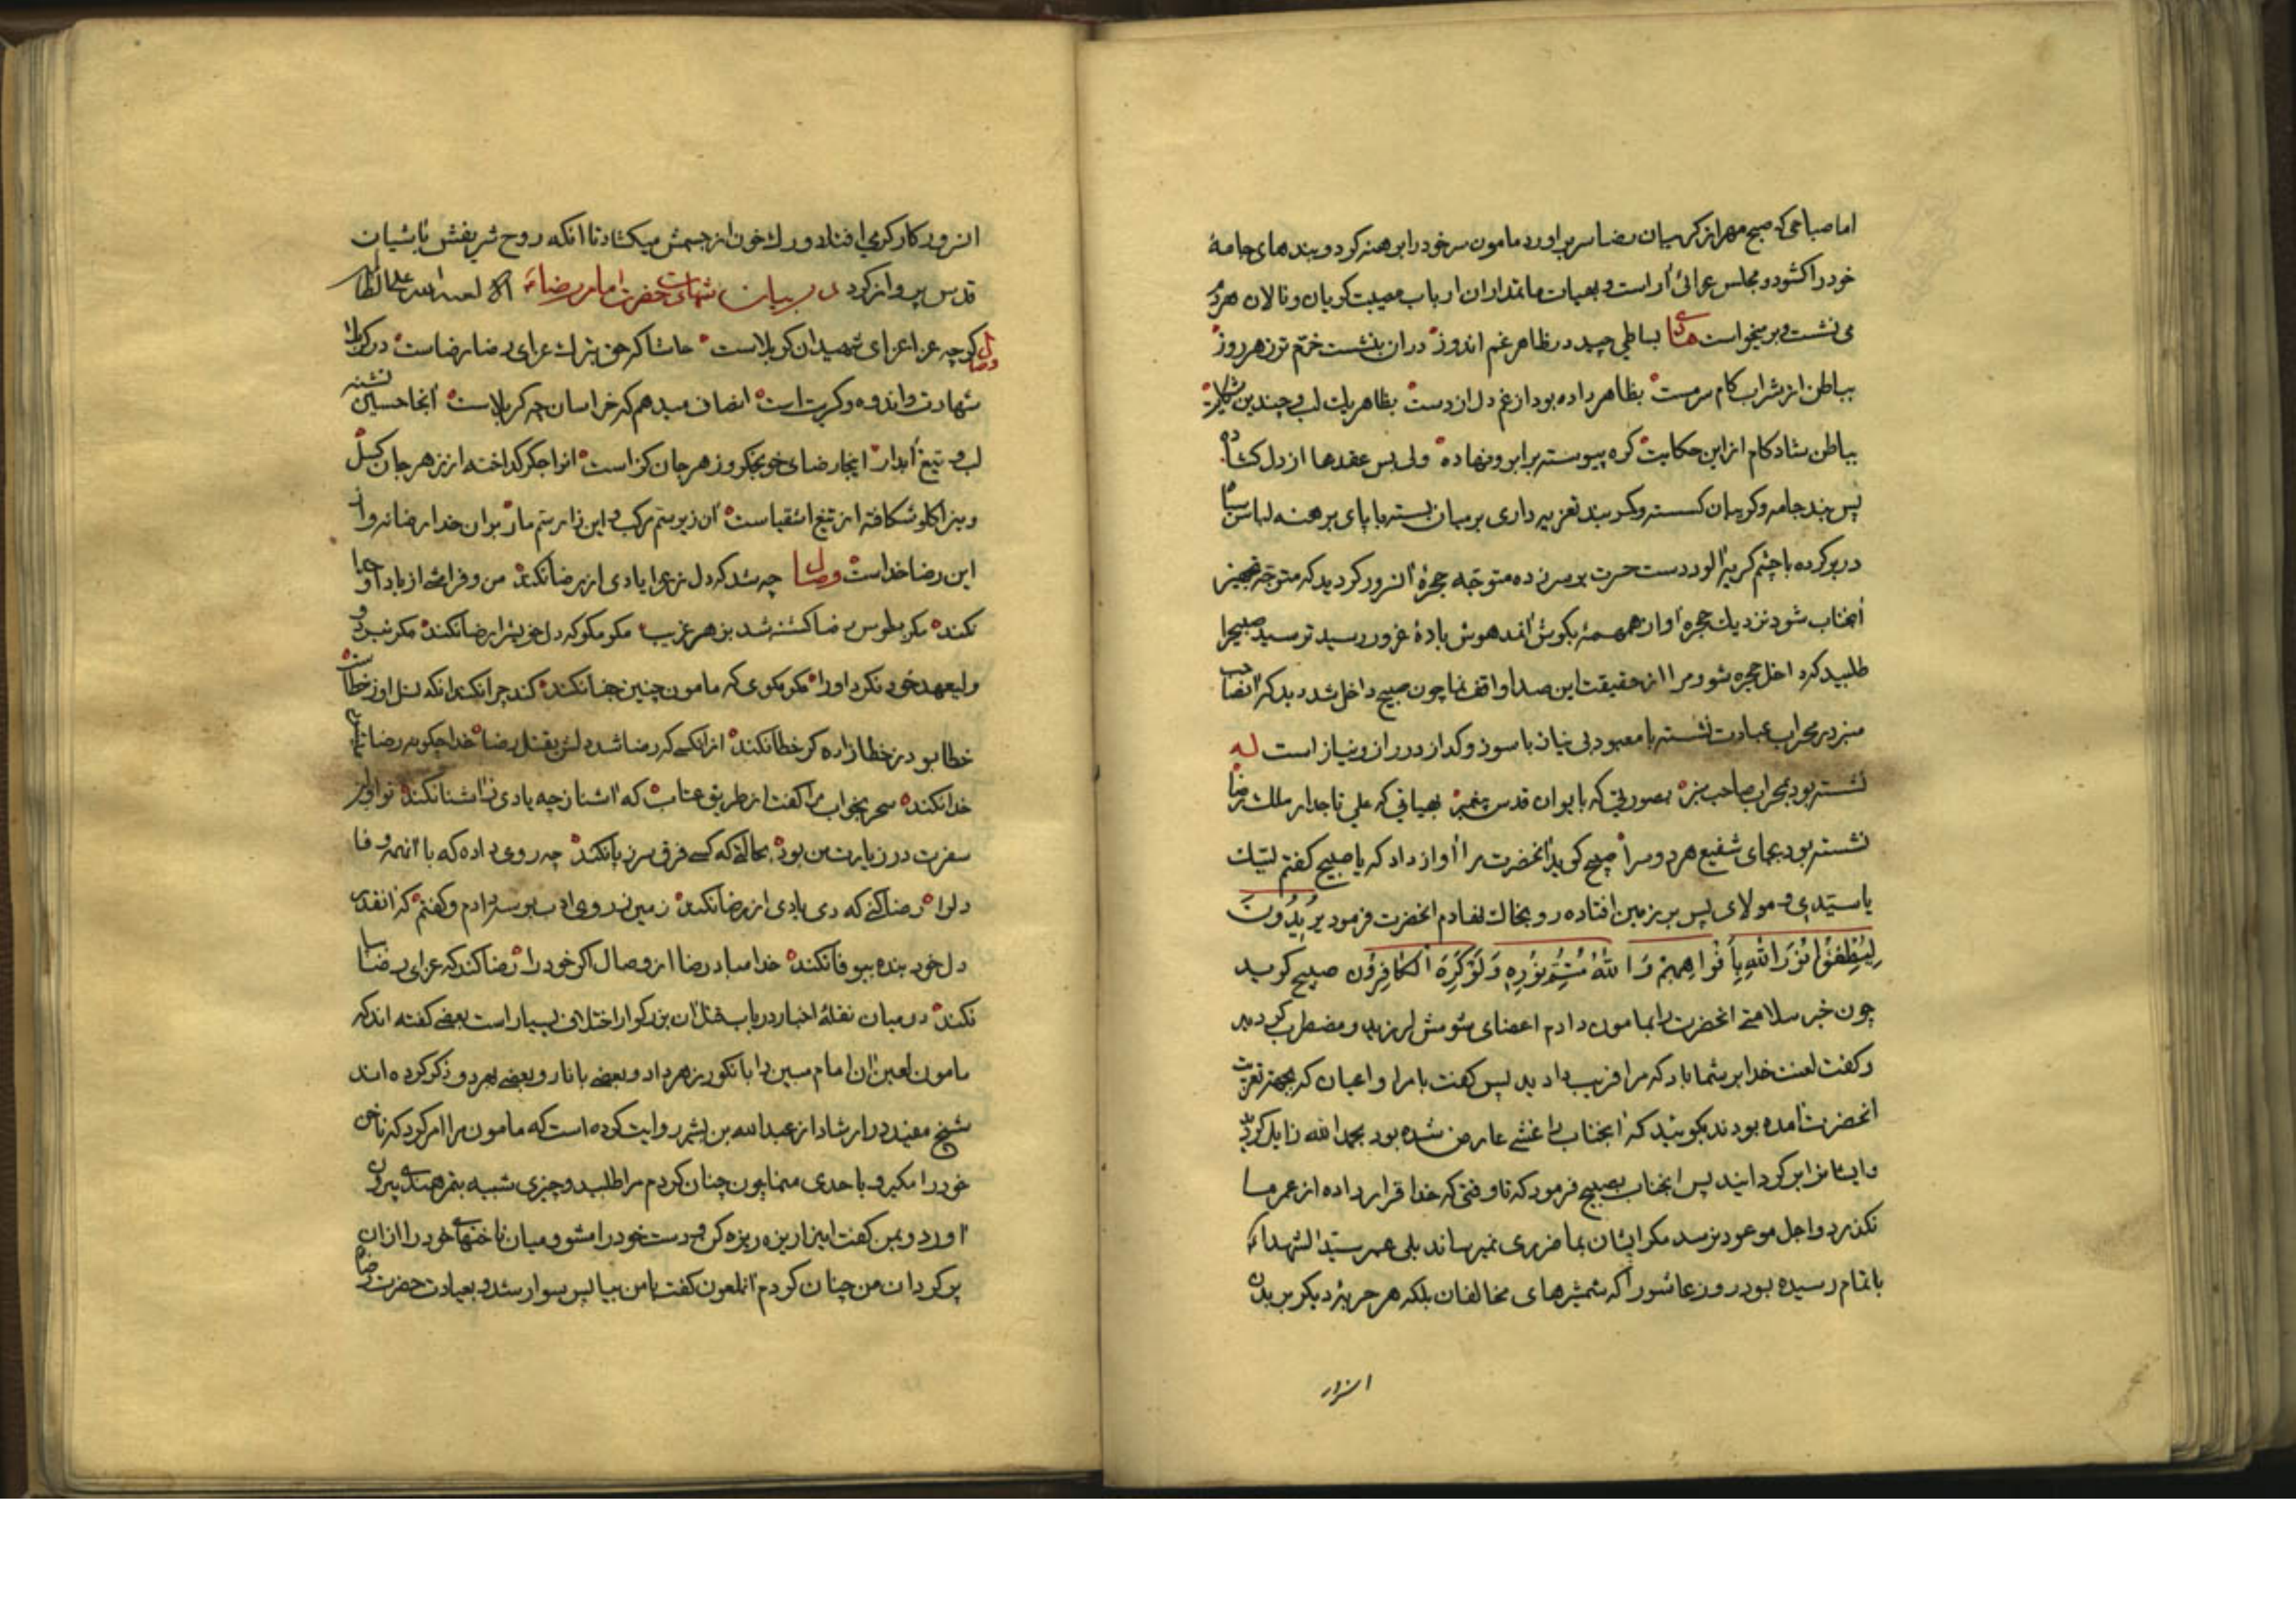 اما صباحی که صبح مهر از کریبان رضا سر براورد مامون سر خود را برهنه کرد و بندهای جامهٔ
خود را کشود و مجلس عزائی آراست و بهیات ماتمداران ارباب مصیبت کریان و نالان هردم
می نشست و بر میخواست بساطی چیده در ظاهر غم اندوز دران بنشست خرّم تر ز هر روز
بباطن از شراب کام سرمست بظاهر داده بود از غم دل از دست بظاهر یک لب و چندین شکایت
بباطن شاد کام از این حکایت کره پیوسته بر ابرو نهاده ولی بس عقدها از دل کشاده
پس بند جامه و کریبان کسسته و کمربند تعزیه داری بر میان بسته با پای برهنه لباس سیاه
در بر کرده با چشم کریه آلود دست حسرت بر سر زده متوجّه حجرهٔ آنسرور کردید که متوجّه تجهیز
آنجناب شود نزدیک حجره آواز همهمهٔ بکوش آن مدهوش بادهٔ غرور رسید ترسید صبیح را
طلبید که داخل حجره شو و مرا از حقیقت این صدا واقف نما چون صبیح داخل شد دید که آنصاحب
منبر در محراب عبادت نشسته با معبود بی نیاز با سوز و کداز در راز و نیاز است له
نشسته بود بمحراب صاحب منبر بصورتی که بایوان قدس پیغمبر بهیاتی که علی تاجدار ملک رضا
نشسته بود بجای شفیع هر دو سرا صبیح کوید آنحضرت مرا آواز داد که یا صبیح کفتم لبّیک
یا سیّدی و مولای پس بر زمین افتاده رو بخاک نهادم آنحضرت فرمود یُرِیدُونَ
لِیُطْفِئُوا نُوْرَ اللّٰهِ بِأَفْوَاهِهِمْ وَ اللّٰهُ مُتِمُّ نُوْرِهِ وَلَوْ کَرِهَ الْکَافِرُوْن صبیح کوید
چون خبر سلامتی آنحضرت را بمامون دادم اعضای شومش لرزید و مضطرب کردید
و کفت لعنت خدا بر شما باد که مرا فریب دادید پس کفت بامرا و اعیان که بجهة تعزیت
آنحضرت آمده بودند بکوئید که آنجناب را غشی عارض شده بود بحمد الله زایل کردید
و ایشانرا بر کردانید پس آنجناب بصبیح فرمود که تا وقتی که خدا قرار داده از عمر ما
نکذرد و اجل موعود نرسد مکر ایشان بما ضرری نمیرساند بلی عمر سیّد الشهداء
باتمام رسیده بود روز عاشورا که شمشیرهای مخالفان بلکه هر حربهٔ دیکر بر بدن
انسرور
انسرور کارکر می افتاد و رک خون از جسمش میکشاد تا آنکه روح شریفش باشیان
قدس پرواز کرد در بیان شهادت حضرت امام رضاء الا لعنة الله علی الظالمین
وصال کر چه عزا عزای شهیدان کربلاست حاشا که حق بترک عزای رضا رضاست در کربلا
شهادت و اندوه و کربت است انصاف میدهم که خراسان چه کربلاست آنجا حسین تشنه
لب و تیغ آبدار اینجا رضای خونجکر و زهر جان کزاست آنرا جکر کداخته از زهر جان کسل
وینرا کلو شکافته از تیغ اشقیاست آن زیر سمّ مرکب و این زار سمّ مار بر آن خدا رضا نه و از
این رضا خداست وصال چه شد که دل ز عزا یادی از رضا نکند من و فراغت از یاد او خدا
نکند مکر بطوس رضا کشته شد بزهر غریب مکو مکو که دل خویشرا رضا نکند مکر نبرد و
ولیعهد خود نکرد او را مکو مکوی که مامون چنین جفا نکند کند چرا نکند انکه نسل او ز خطاست
خطا بود ز خطازاده کر خطا نکند از آنکسی که رضا شد دلش بقتل رضا خدا چکونه رضا
خدا نکند سحر بخواب مرا کفت از طریق عتاب که آشنا ز چه یادی ز آشنا نکند تو اول
سفرت در زیارت من بود بحالتی که کسی فرق سر ز پا نکند چه روی داده که با آنهمه وفا
دلرا رضا کنی که دمی یادی از رضا نکند زمین ز روی ادب بوسه دادم و کفتم که انقدر
دل خود بنده بیوفا نکند خدا مباد رضا از وصال اکر خود را رضا کند که عزای رضا بپا
نکند در میان نقلهٔ اخبار در باب قتل آن بزرکوار اختلاف بسیار است بعضی کفته اند که
مامون لعین آن امام مبین را بانکور زهر داد و بعضی بانار و بعضی بهر دو ذکر کرده اند
شیخ مفید در ارشاد از عبدالله بن بشیر روایت کرده است که مامون مرا امر کرد که ناخن
خود را مکیر و با حدی منما چون چنان کردم مرا طلبید و چیزی شبیه بتمر هندی بیرون
آورد و بمن کفت اینرا ریزه ریزه کن و دست خود را مشو و میان ناخنهای خود را از آن
پر کردان من چنان کردم آنملعون کفت با من بیا پس سوار شد و بعیادت حضرت رضا